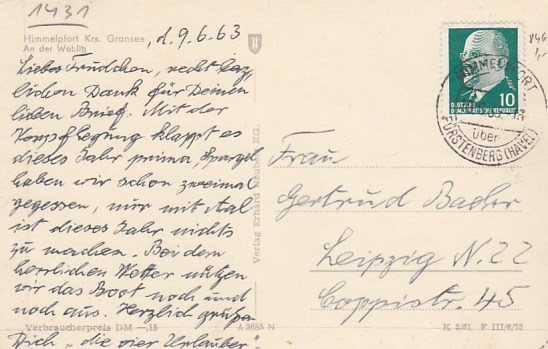 1431
Himmelpfort Krs. Gransee
An der Woblitz
d. 9.6.63
Liebes Frudchen, recht herz
lichen Dank für Deinen
lieben Brief. Mit der
Verpflegung klappt es
dieses Jahr prima, Spargel
haben wir schon zweimal
gegessen, nur mit Aal
ist dieses Jahr nichts
zu machen. Bei dem
herrlichen Wetter nutzen
wir das Boot noch und
noch aus. Herzlich grüßen
Dich "die vier Urlauber"
Verbraucherpreis DM -,15
A 3685 N
Verlag Erhard Neubert KG.
DEUTSCHE
DEMOKRATISCHE REPUBLIK
10
HIMMELPFORT
über
FÜRSTENBERG (HAVEL)
Frau
Gertrud Bader
Leipzig N. 22
Coppistr. 45
K 5/61 F III/6/75